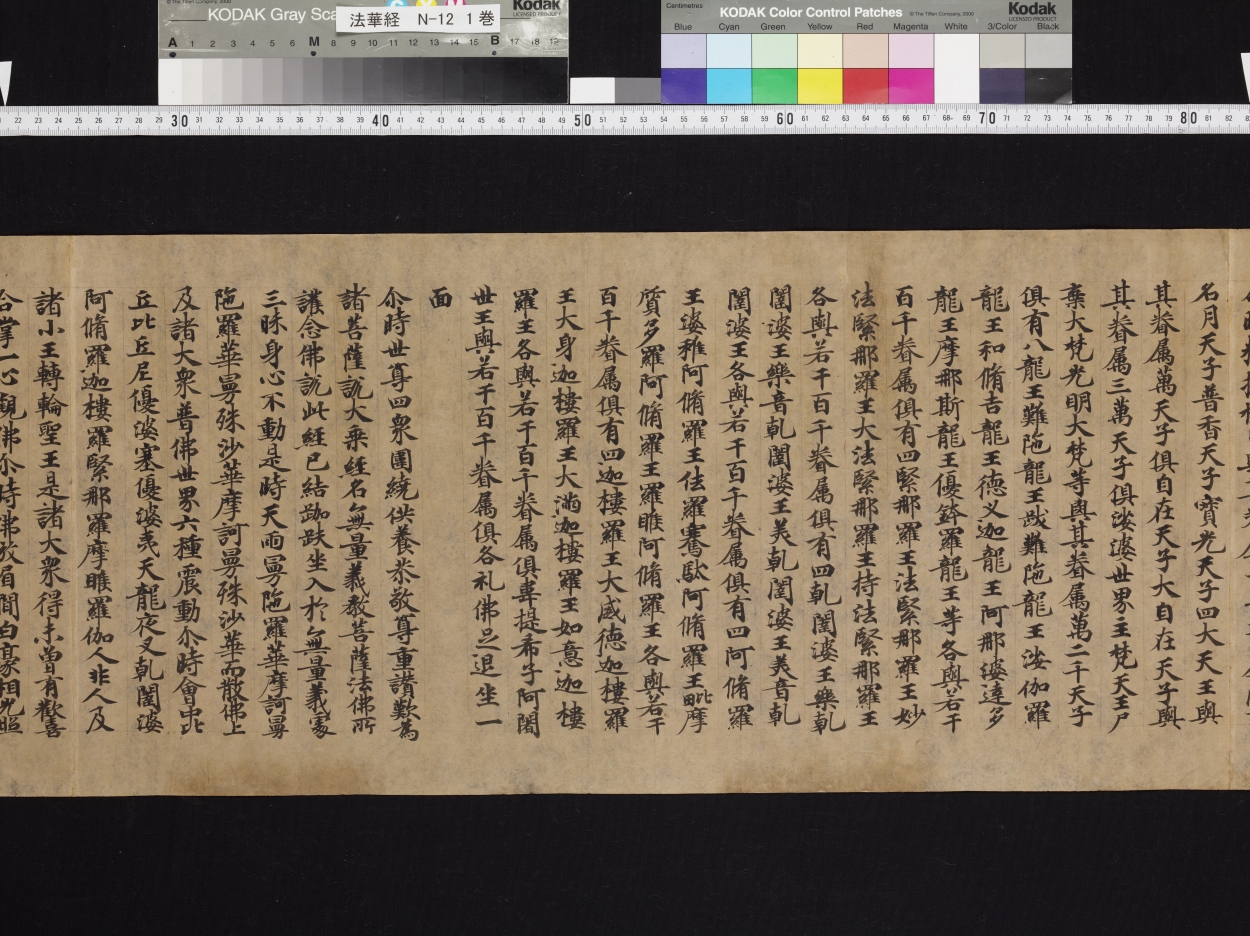 © The Tiffen Company, 2000
KODAK Gray Sca
Kodak
LICENSED PRODUCT
法華経 N-12 1巻
A 1 2 3 4 5 6 M 8 9 10 11 12 13 14 15 B 17 18 19
Centimetres
KODAK Color Control Patches
© The Tiffen Company, 2000
Kodak
LICENSED PRODUCT
Blue Cyan Green Yellow Red Magenta White 3/Color Black
22 23 24 25 26 27 28 29 30 31 32 33 34 35 36 37 38 39 40 41 42 43 44 45 46 47 48 49 50 51 52 53 54 55 56 57 58 59 60 61 62 63 64 65 66 67 68 69 70 71 72 73 74 75 76 77 78 79 80 81 82
名月天子普香天子寶光天子四大天王與
其眷属萬天子俱自在天子大自在天子與
其眷属三萬天子俱娑婆世界主梵天王尸
棄大梵光明大梵等與其眷属萬二千天子
俱有八龍王難陁龍王跋難陁龍王娑伽羅
龍王和脩吉龍王德义迦龍王阿那婆達多
龍王摩那斯龍王優鉢羅龍王等各與若干
百千眷属俱有四緊那羅王法緊那羅王妙
法緊那羅王大法緊那羅王持法緊那羅王
各與若干百千眷属俱有四乹闥婆王樂乹
闥婆王樂音乹闥婆王美乹闥婆王美音乹
闥婆王各與若干百千眷属俱有四阿脩羅
王婆稚阿脩羅王佉羅騫馱阿脩羅王毗摩
質多羅阿脩羅王羅睺阿脩羅王各與若干
百千眷属俱有四迦樓羅王大威德迦樓羅
王大身迦樓羅王大滿迦樓羅王如意迦樓
羅王各與若干百千眷属俱韋提希子阿闍
世王與若干百千眷属俱各礼佛足退坐一
面
尒時世尊四衆圍繞供養恭敬尊重讚歎為
諸菩薩說大乘經名無量義教菩薩法佛所
護念佛說此經已結跏趺坐入於無量義處
三昧身心不動是時天雨曼陁羅華摩訶曼
陁羅華曼殊沙華摩訶曼殊沙華而散佛上
及諸大衆普佛世界六種震動尒時會中比
丘比丘尼優婆塞優婆夷天龍夜叉乹闥婆
阿脩羅迦樓羅緊那羅摩睺羅伽人非人及
諸小王轉輪聖王是諸大衆得未曾有歡喜
合掌一心觀佛尒時佛放眉間白豪相光照